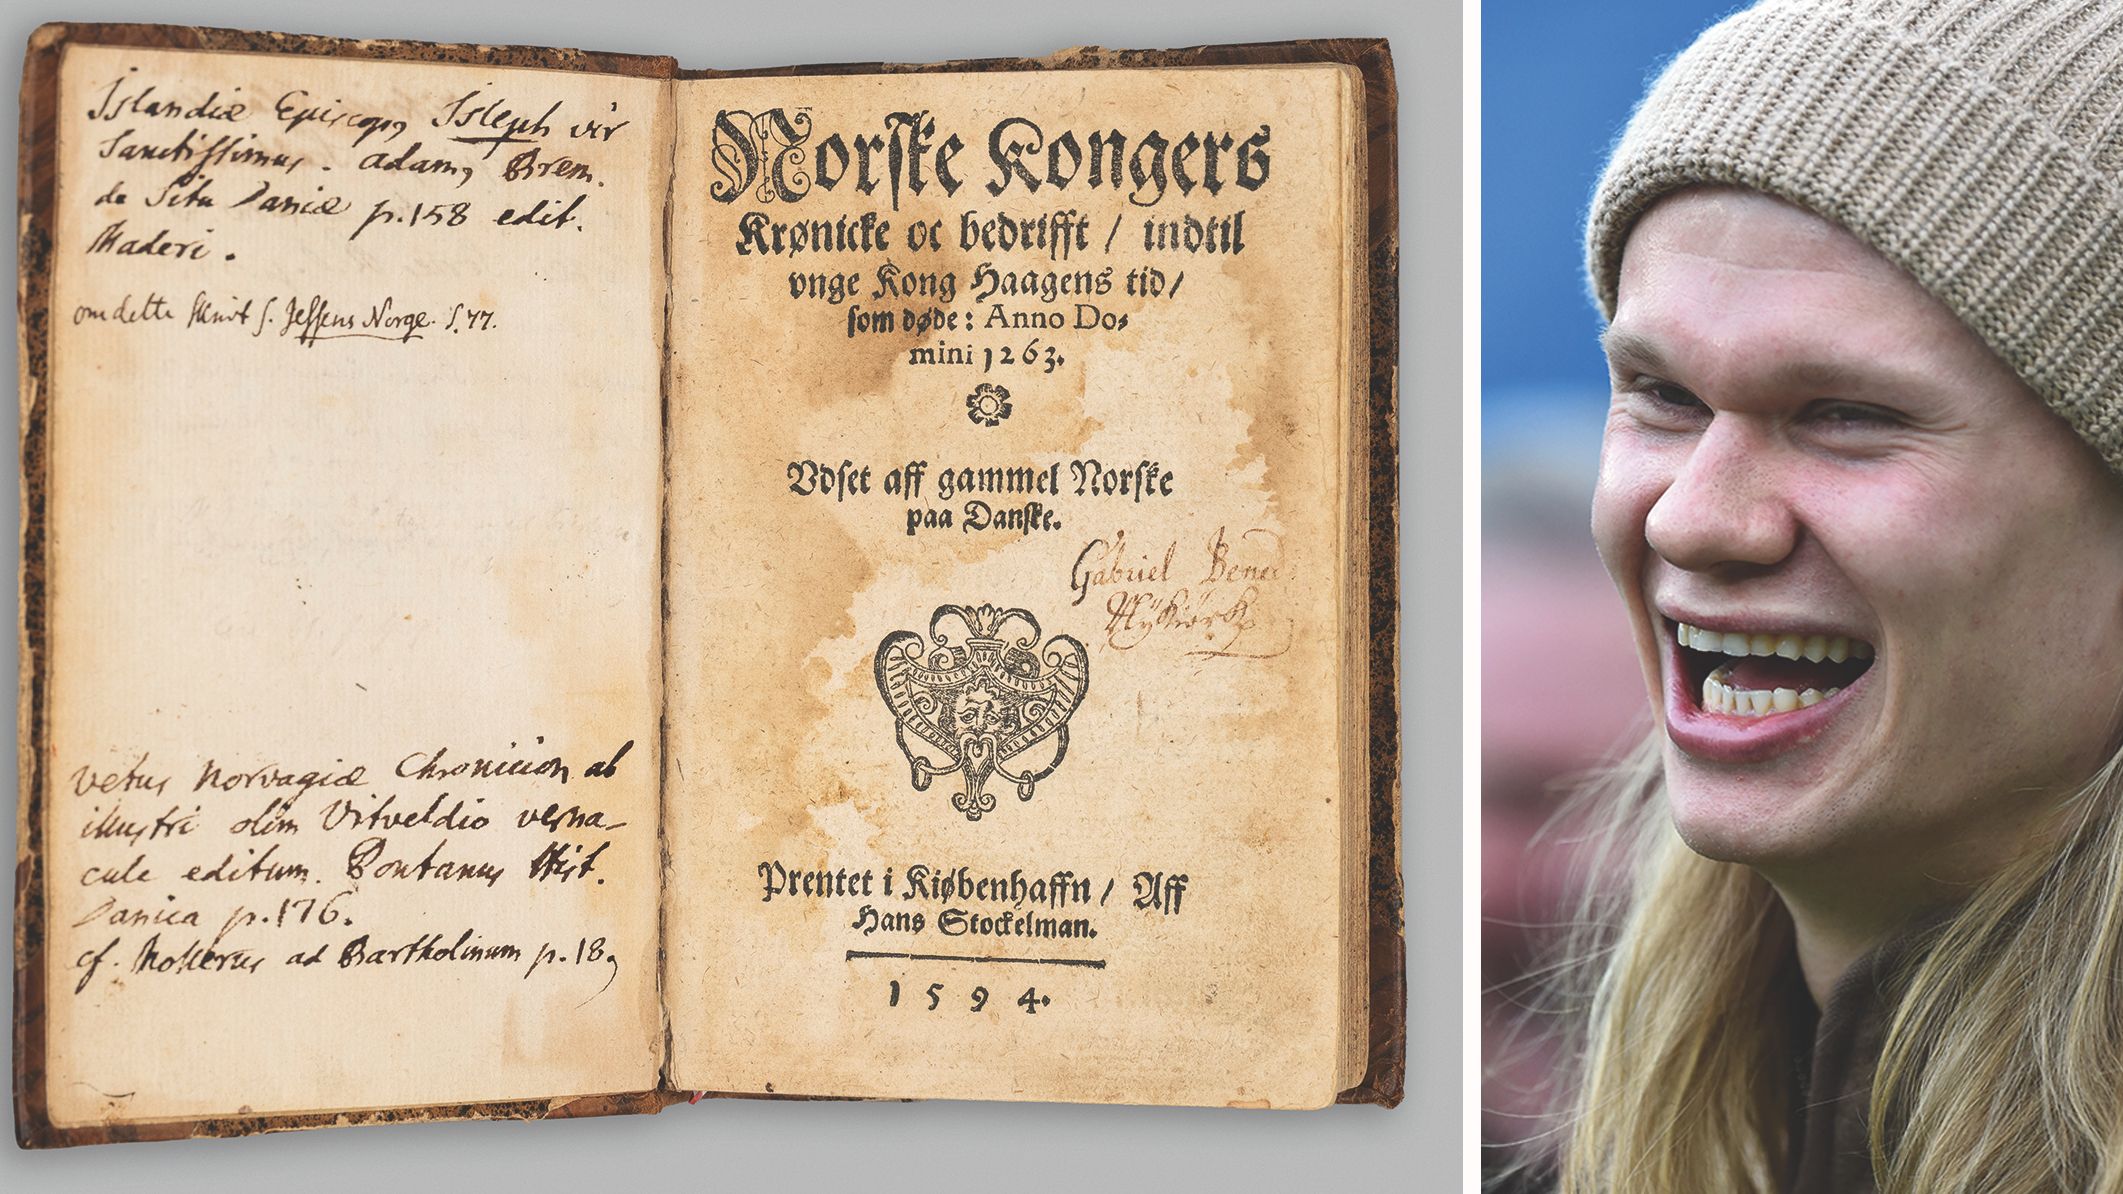 Islandiæ Episcop9 Isleph vir
Sanctissimus. Adam9 Brem.
de Situ Daniæ p.158 edit.
Maderi.
om dette Skrivt s. Jessens Norge. S.77.
vetus Norvagiæ Chronicion ab
illustri olim Vitveldio verna-
cule editum. Pontanus Hist.
Danica p.176.
cf. Mollerus ad Bartholinum p.18.
Norſke Kongers
Krønicke oc bedrifft / indtil
vnge Kong Haagens tid/
ſom døde: Anno Do⸗
mini 1263.
Vdſet aff gammel Norſke
paa Danſke.
Gabriel
Prentet i Kiøbenhaffn / Aff
Hans Stockelman.
1594.